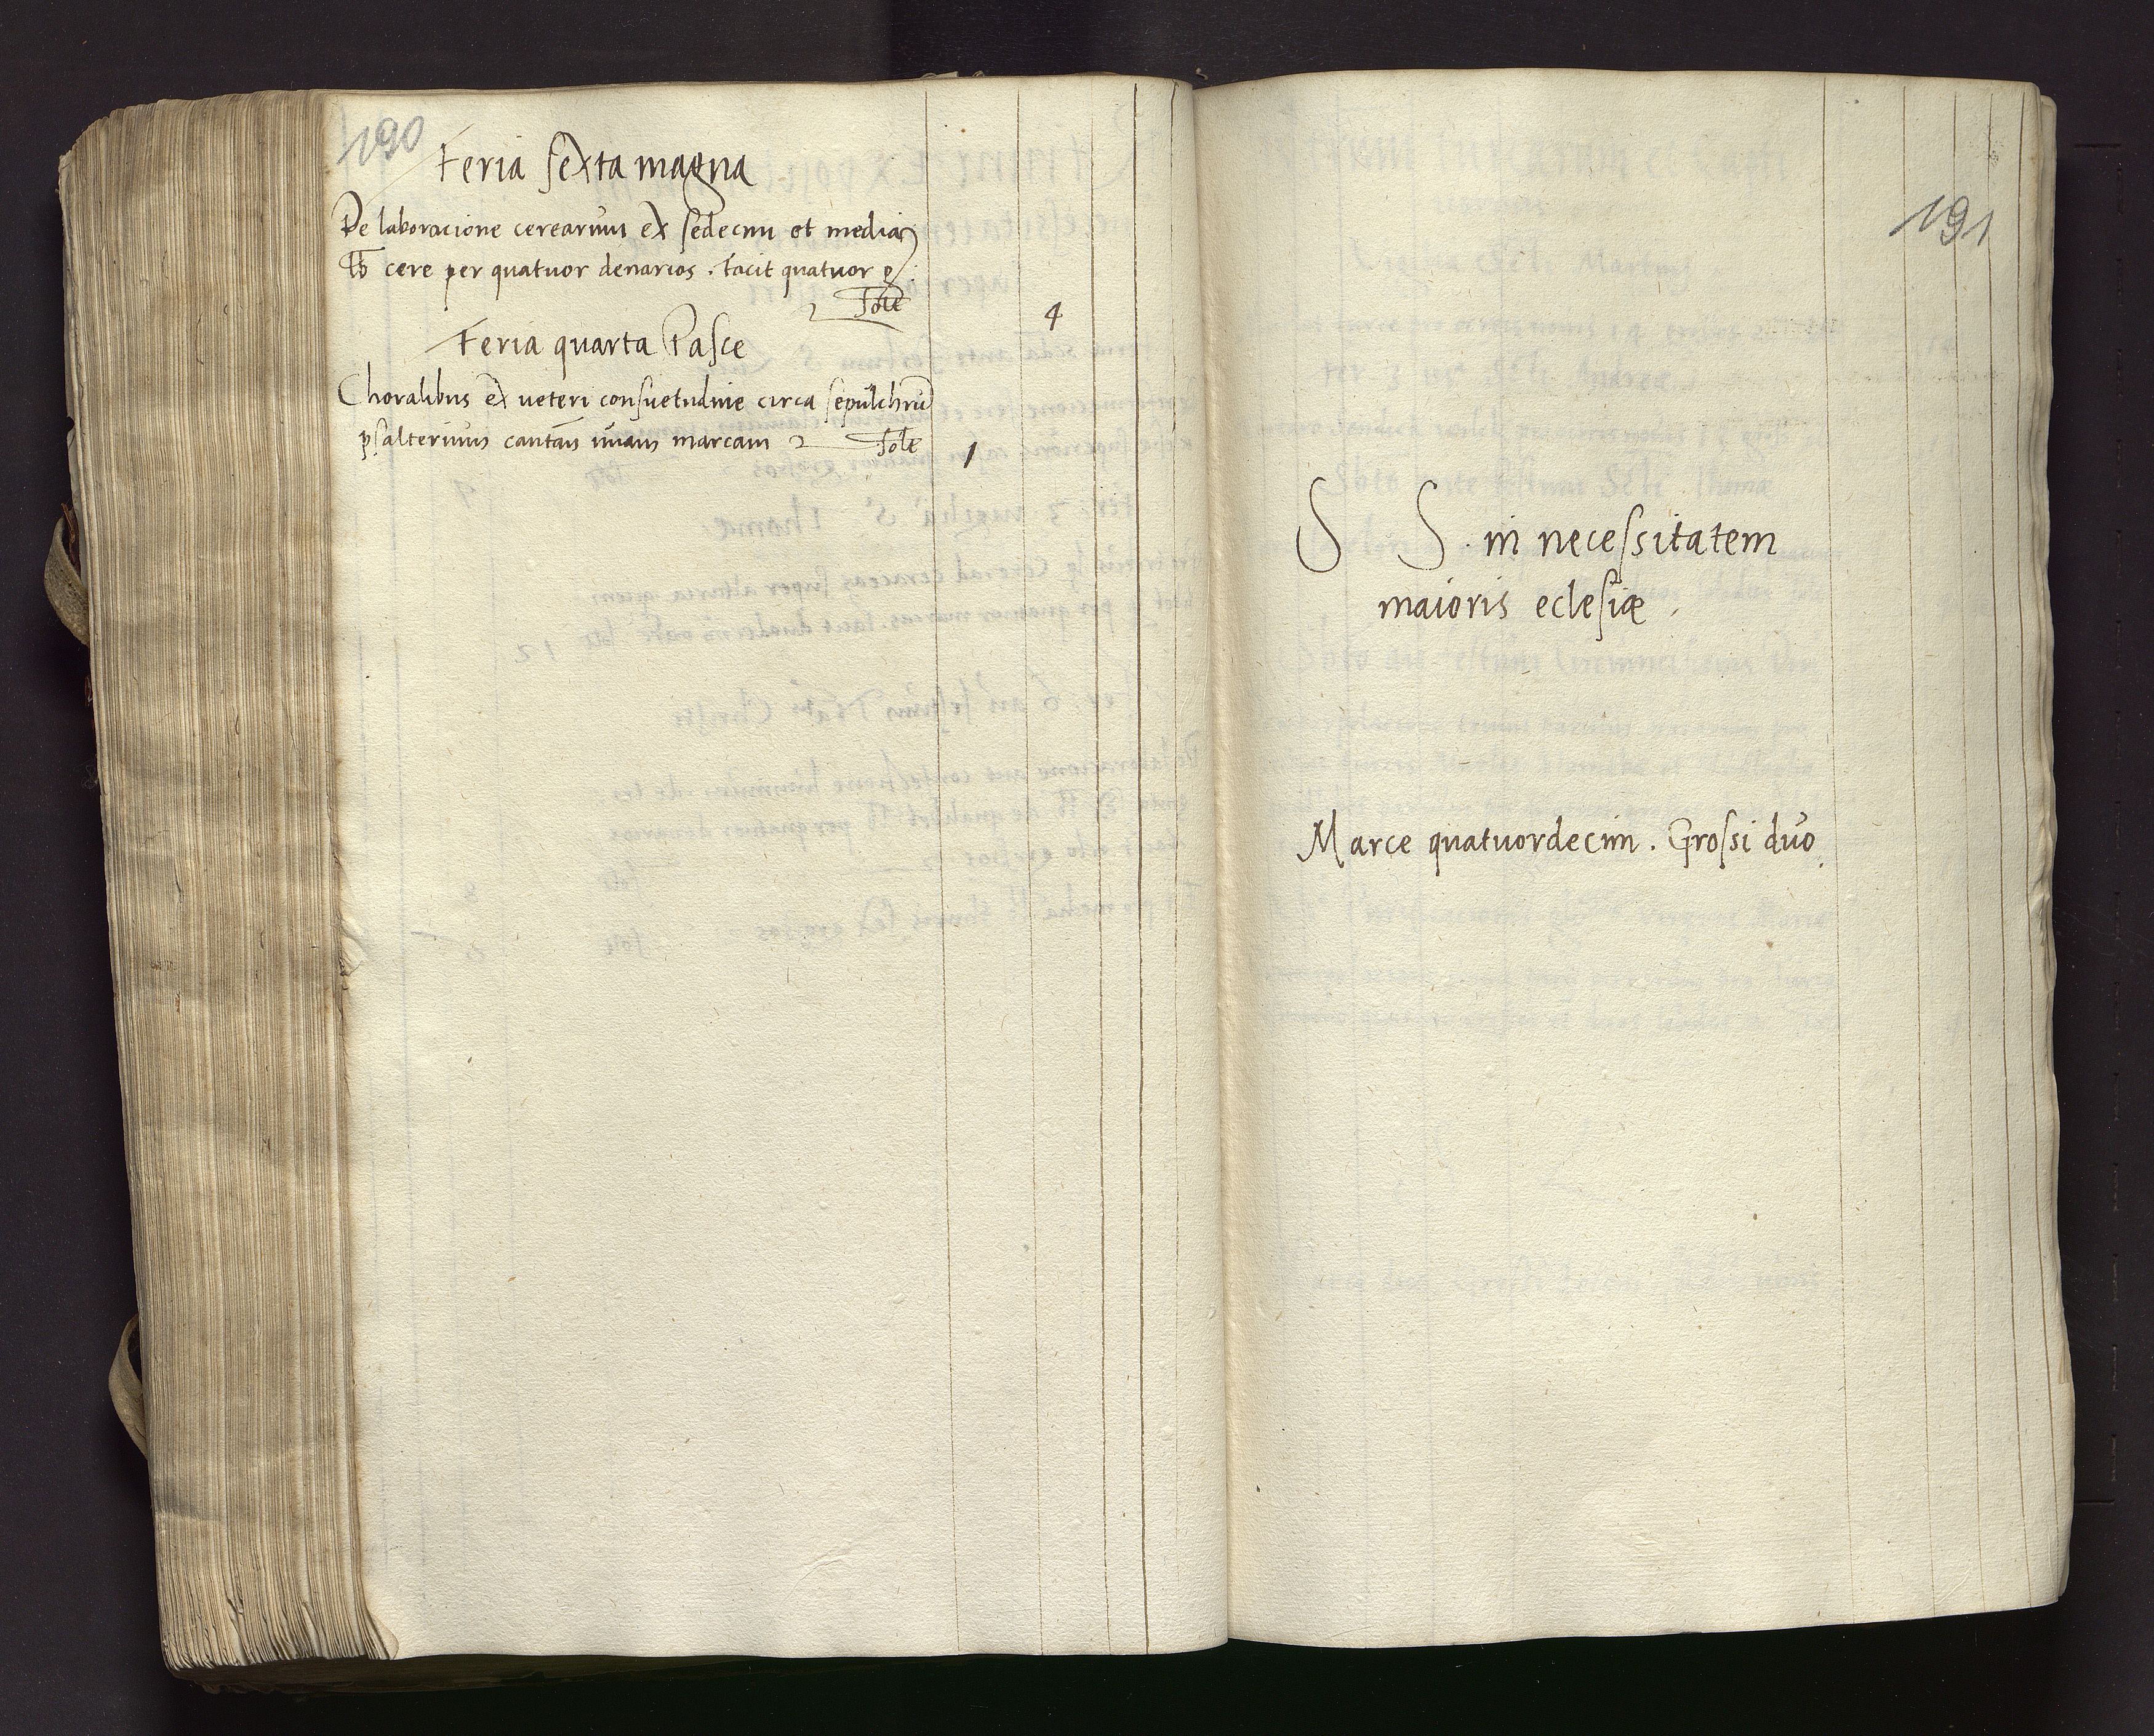 190
Feria sexta magna
De laboracione cerearum ex sedecim et media
lb cere per quatuor denarios . facit quatuor g
Solt 4
Feria quarta Pasce
Choralibus ex ueteri consuetudine circa sepulchrū
psalterium cantan̄ unam marcam Solt 1
191
S S . in necessitatem
maioris eclesiæ .
Marce quatuordecim . Grossi duo .